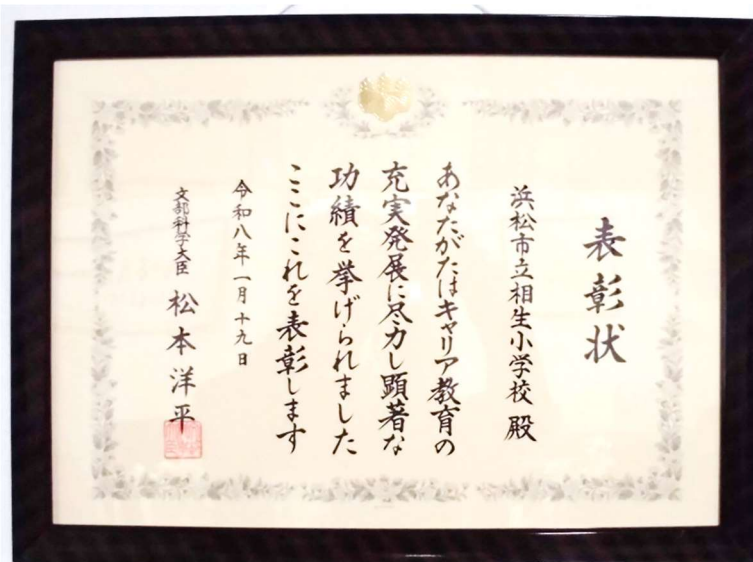 表彰状
浜松市立相生小学校 殿
あなたがたはキャリア教育の
充実発展に尽力し顕著な
功績を挙げられました
ここにこれを表彰します
令和八年一月十九日
文部科学大臣 松本洋平